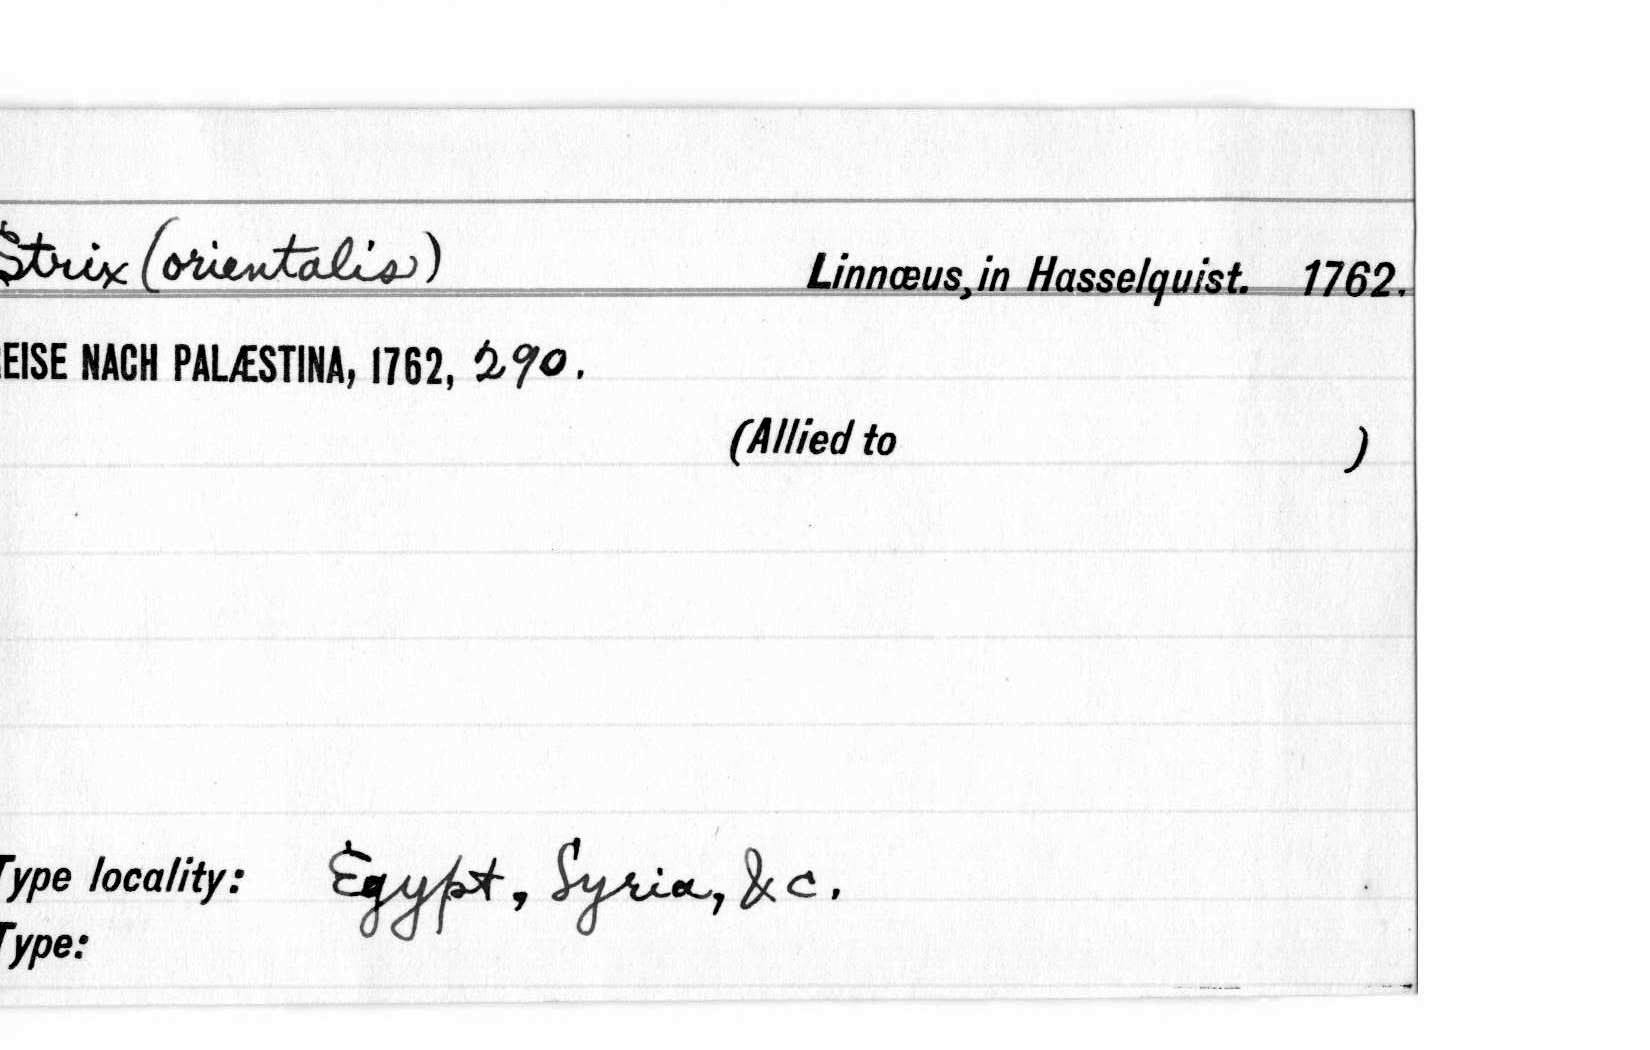 Strix (orientalis) Linnæus, in Hasselquist. 1762.
EISE NACH PALÆSTINA, 1762, 290.
(Allied to )
Type locality: Egypt, Syria, &c.
Type: